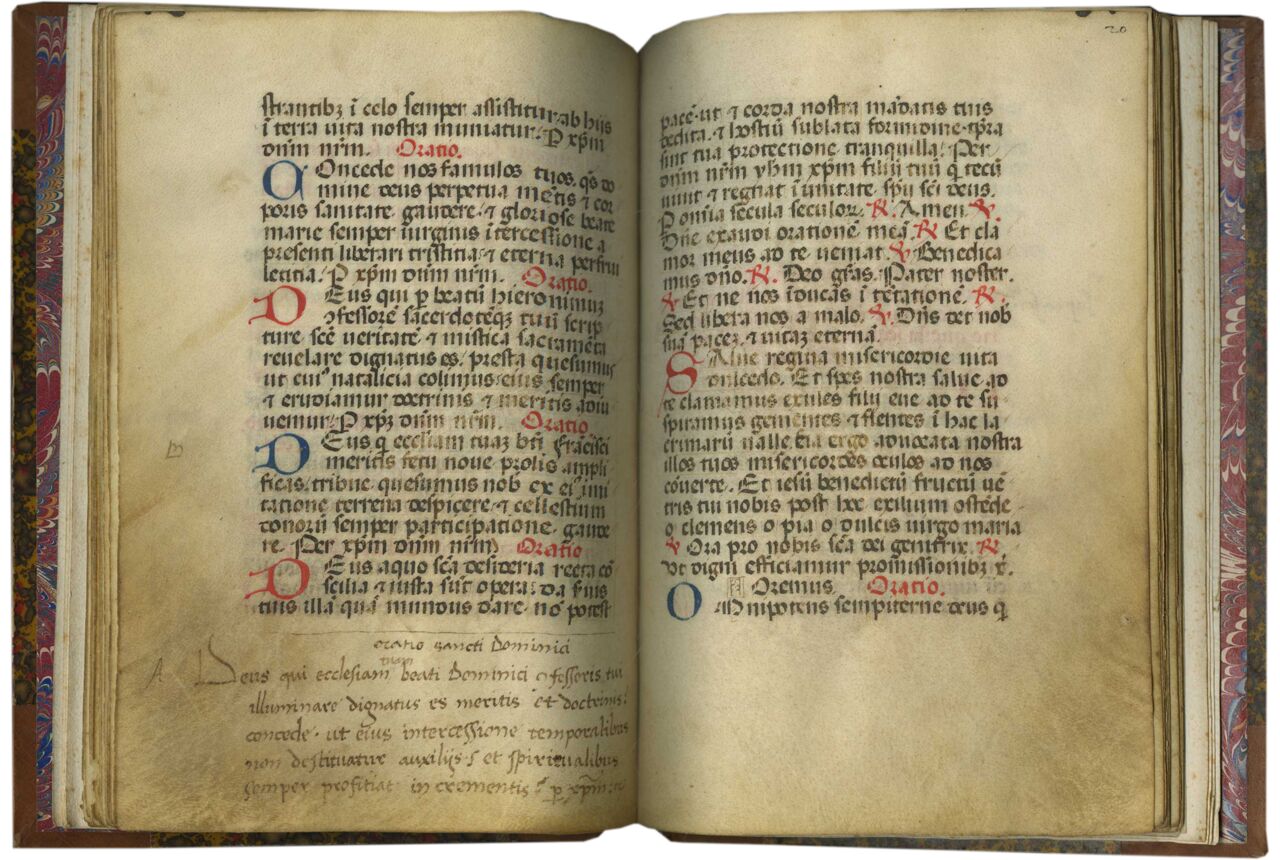 strantibꝫ ī celo semper assistitur ab hijs
ī terra uita nostra muniatur. P xp̄m
dūm nr̄m. Oratio.
COncede nos famulos tuos. q̄s do
mine deus perpetua mētis ⁊ cor
poris sanitate gaudere. ⁊ gloriose beate
marie semper uirginis ītercessione a
presenti liberari tristitia. ⁊ eterna perfrui
letitia. P xp̄m dūm nr̄m. Oratio.
DEus qui p beatū hieronimuꝫ
ꝯfessorē sacerdotēqꝫ tuū scrip
ture scē ueritatē ⁊ mistica sacramēta
reuelare dignatus es. presta quesumus
ut cuiꝰ natalicia colimus. eius semper
⁊ erudiamur doctrinis ⁊ meritis adiu
uemur. P xp̄ꝫ dūm nr̄m. Oratio
DEus q̄ eccliam tuaꝫ bt̄i Frācisci
meritis fetu noue prolis ampli
ficas. tribue quesumus nob ex eiꝰ imi
tatione terrena despicere. ⁊ celestium
donorū semper participatione. gaude
re. Per xp̄m dūm nr̄m. Oratio
DEus a quo scā desideria recta cō
scilia ⁊ iusta sūt opera. da suis
tuis illā quā mundus dare. nō potest
oratio sancti Dominici
A Deus qui ecclesiam tuam beati Dominici ꝯfessoris tui
illuminare dignatus es meritis et doctrinis:
concede. ut eius intercessione temporalibus
non destituatur auxilijs: et spiritualibus
semper profitiat incrementis. p xp̄m
20
pacē. ut ⁊ corda nostra mādatis tuis
dedita. ⁊ hostiū sublata formidine. tp̄ra
sint tua protectione tranquilla. Per
dūm nr̄m yhm xp̄m filiū tuū q̄ tecū
uiuit ⁊ regnat ī unitate. spū scī deus.
P omīa secula seculoꝝ. ℟. Amen. ℣.
Dn̄e exaudi orationē meā. ℟. Et cla
mor meus ad te ueniat. ℣. Benedica
mus dn̄o. ℟. Deo gr̄as. Pater noster.
℣. Et ne nos īducas ī tētationē. ℟.
Sed libera nos a malo. ℣. Dn̄s det nob
suā paceꝫ. ⁊ uitaꝫ eternā.
SAlue regina misericordie uita
dulcedo. Et spes nostra salue. ad
te clamamus exules filij eue ad te su
spiramus gementes ⁊ flentes ī hac la
crimarū ualle. Eia ergo aduocata nostra
illos tuos misericordes oculos ad nos
cōuerte. Et iesū benedictū fructū uē
tris tui nobis post hoc exilium ostēde.
o clemens o pia o dulcis uirgo maria
℣ Ora pro nobis scā dei genitrix. ℟.
Vt digni efficiamur promissionibꝫ x̄.
Oremus. Oratio.
OMnipotens sempiterne deus q̄